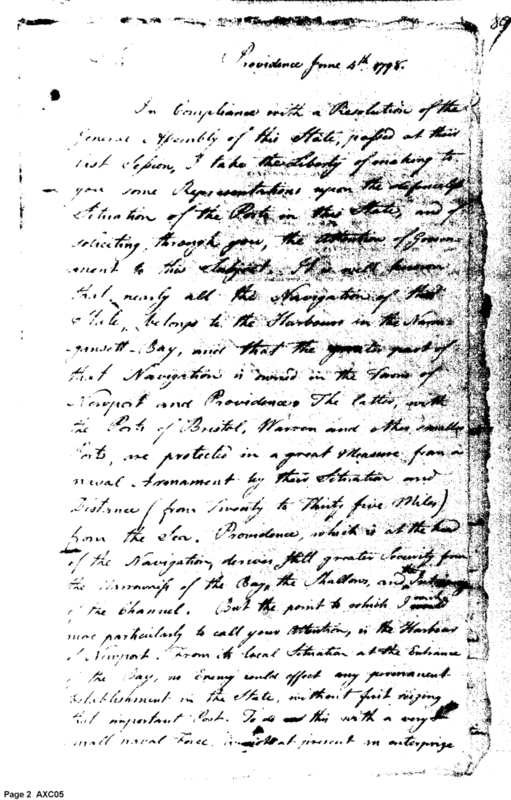 89
Providence June 4th. 1798.
In Compliance with a Resolution of the
General Assembly of this State, passed at their
last Session, I take the Liberty of making to
you some Representations upon the defenceless
Situation of the Ports in this State, and of
soliciting through you, the Attention of Govern-
ment to this Subject. It is well known
that nearly all the Navigation of this
State, belongs to the Harbours in the Narra-
gansett-Bay, and that the greater part of
that Navigation is owned in the Towns of
Newport and Providence. The latter, with
the Ports of Bristol, Warren and other smaller
Ports, are protected in a great Measure from a
naval Armament by their Situation and
Distance (from Twenty to Thirty five Miles)
from the Sea. Providence, which is at the head
of the Navigation, derives still greater Security from
the Narrowness of the Bay, the Shallows, and the
of the Channel. But the point to which I would
more particularly to call your Attention, is the Harbour
of Newport. From its local Situation at the Entrance
of the Bay, no Enemy could effect any permanent
Establishment in the State, without first seizing
that important Post. To do this with a very
small naval Force, is at present an enterprize
Page 2 AXC05